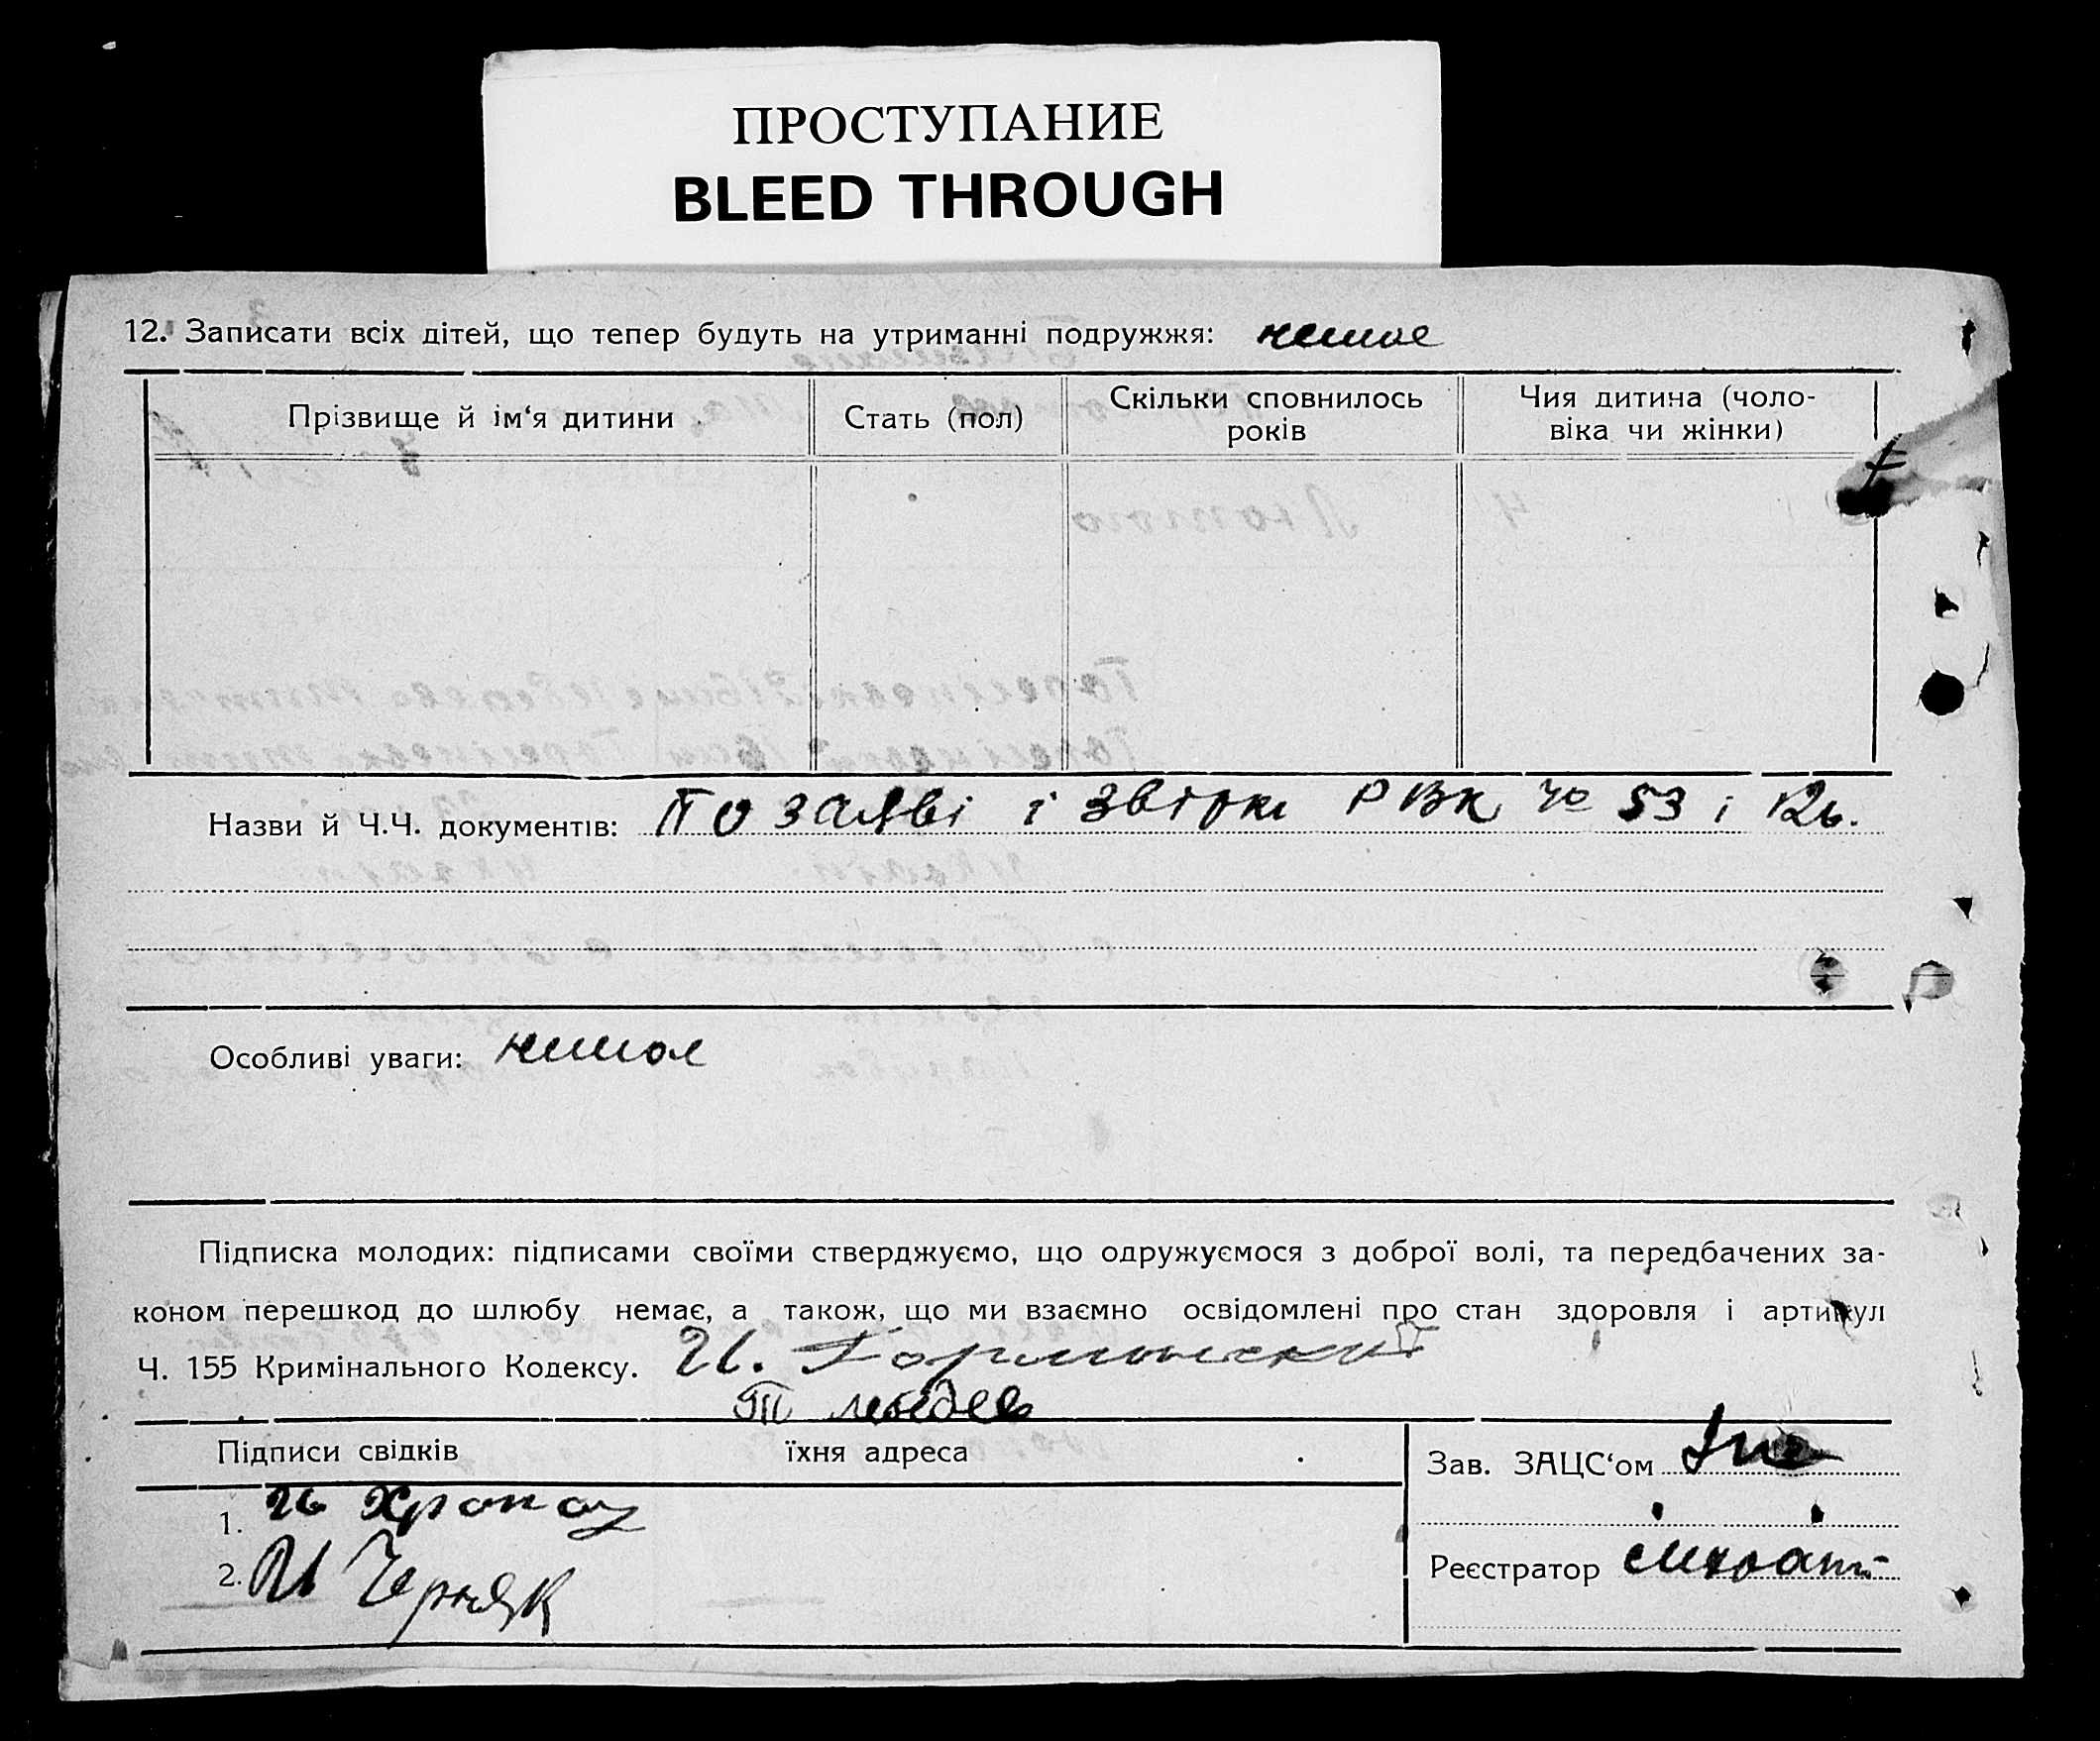 ПРОСТУПАНИЕ
BLEED THROUGH
12. Записати всіх дітей, що тепер будуть на утриманні подружжя: немає
Прізвище й ім‘я дитини
Стать (пол)
Скільки сповнилось
років
Чия дитина (чоло-
віка чи жінки)
Назви й Ч.Ч. документів: По заяві і звірки РВК № 53 і
Особливі уваги: немає
Підписка молодих: підписами своїми стверджуємо, що одружуємося з доброї волі, та передбачених за-
коном перешкод до шлюбу немає, а також, що ми взаємно освідомлені про стан здоровля і артикул
Ч. 155 Кримінального Кодексу. И.
Підписи свідків їхня адреса
Зав. ЗАЦС‘ом
1.
2. И Черняк
Реєстратор